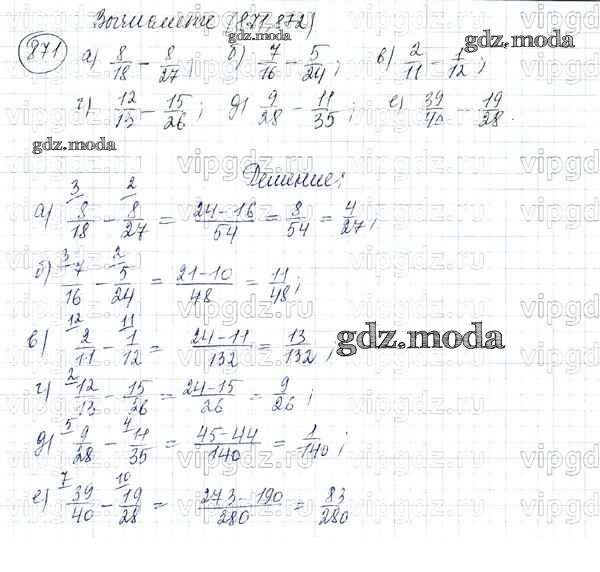 Вычислите (871,872)
gdz.moda
871 а) 8/18 - 8/27; б) 7/16 - 5/24; в) 2/11 - 1/12;
г) 12/13 - 15/26; д) 9/28 - 11/35; е) 39/40 - 19/28.
gdz.moda
Решение:
а) 8/18 (3) - 8/27 (2) = (24-16)/54 = 8/54 = 4/27;
б) 7/16 (3) - 5/24 (2) = (21-10)/48 = 11/48;
в) 2/11 (12) - 1/12 (11) = (24-11)/132 = 13/132;
gdz.moda
г) 12/13 (2) - 15/26 = (24-15)/26 = 9/26;
д) 9/28 (5) - 11/35 (4) = (45-44)/140 = 1/140;
е) 39/40 (7) - 19/28 (10) = (273-190)/280 = 83/280
vipgdz.ru